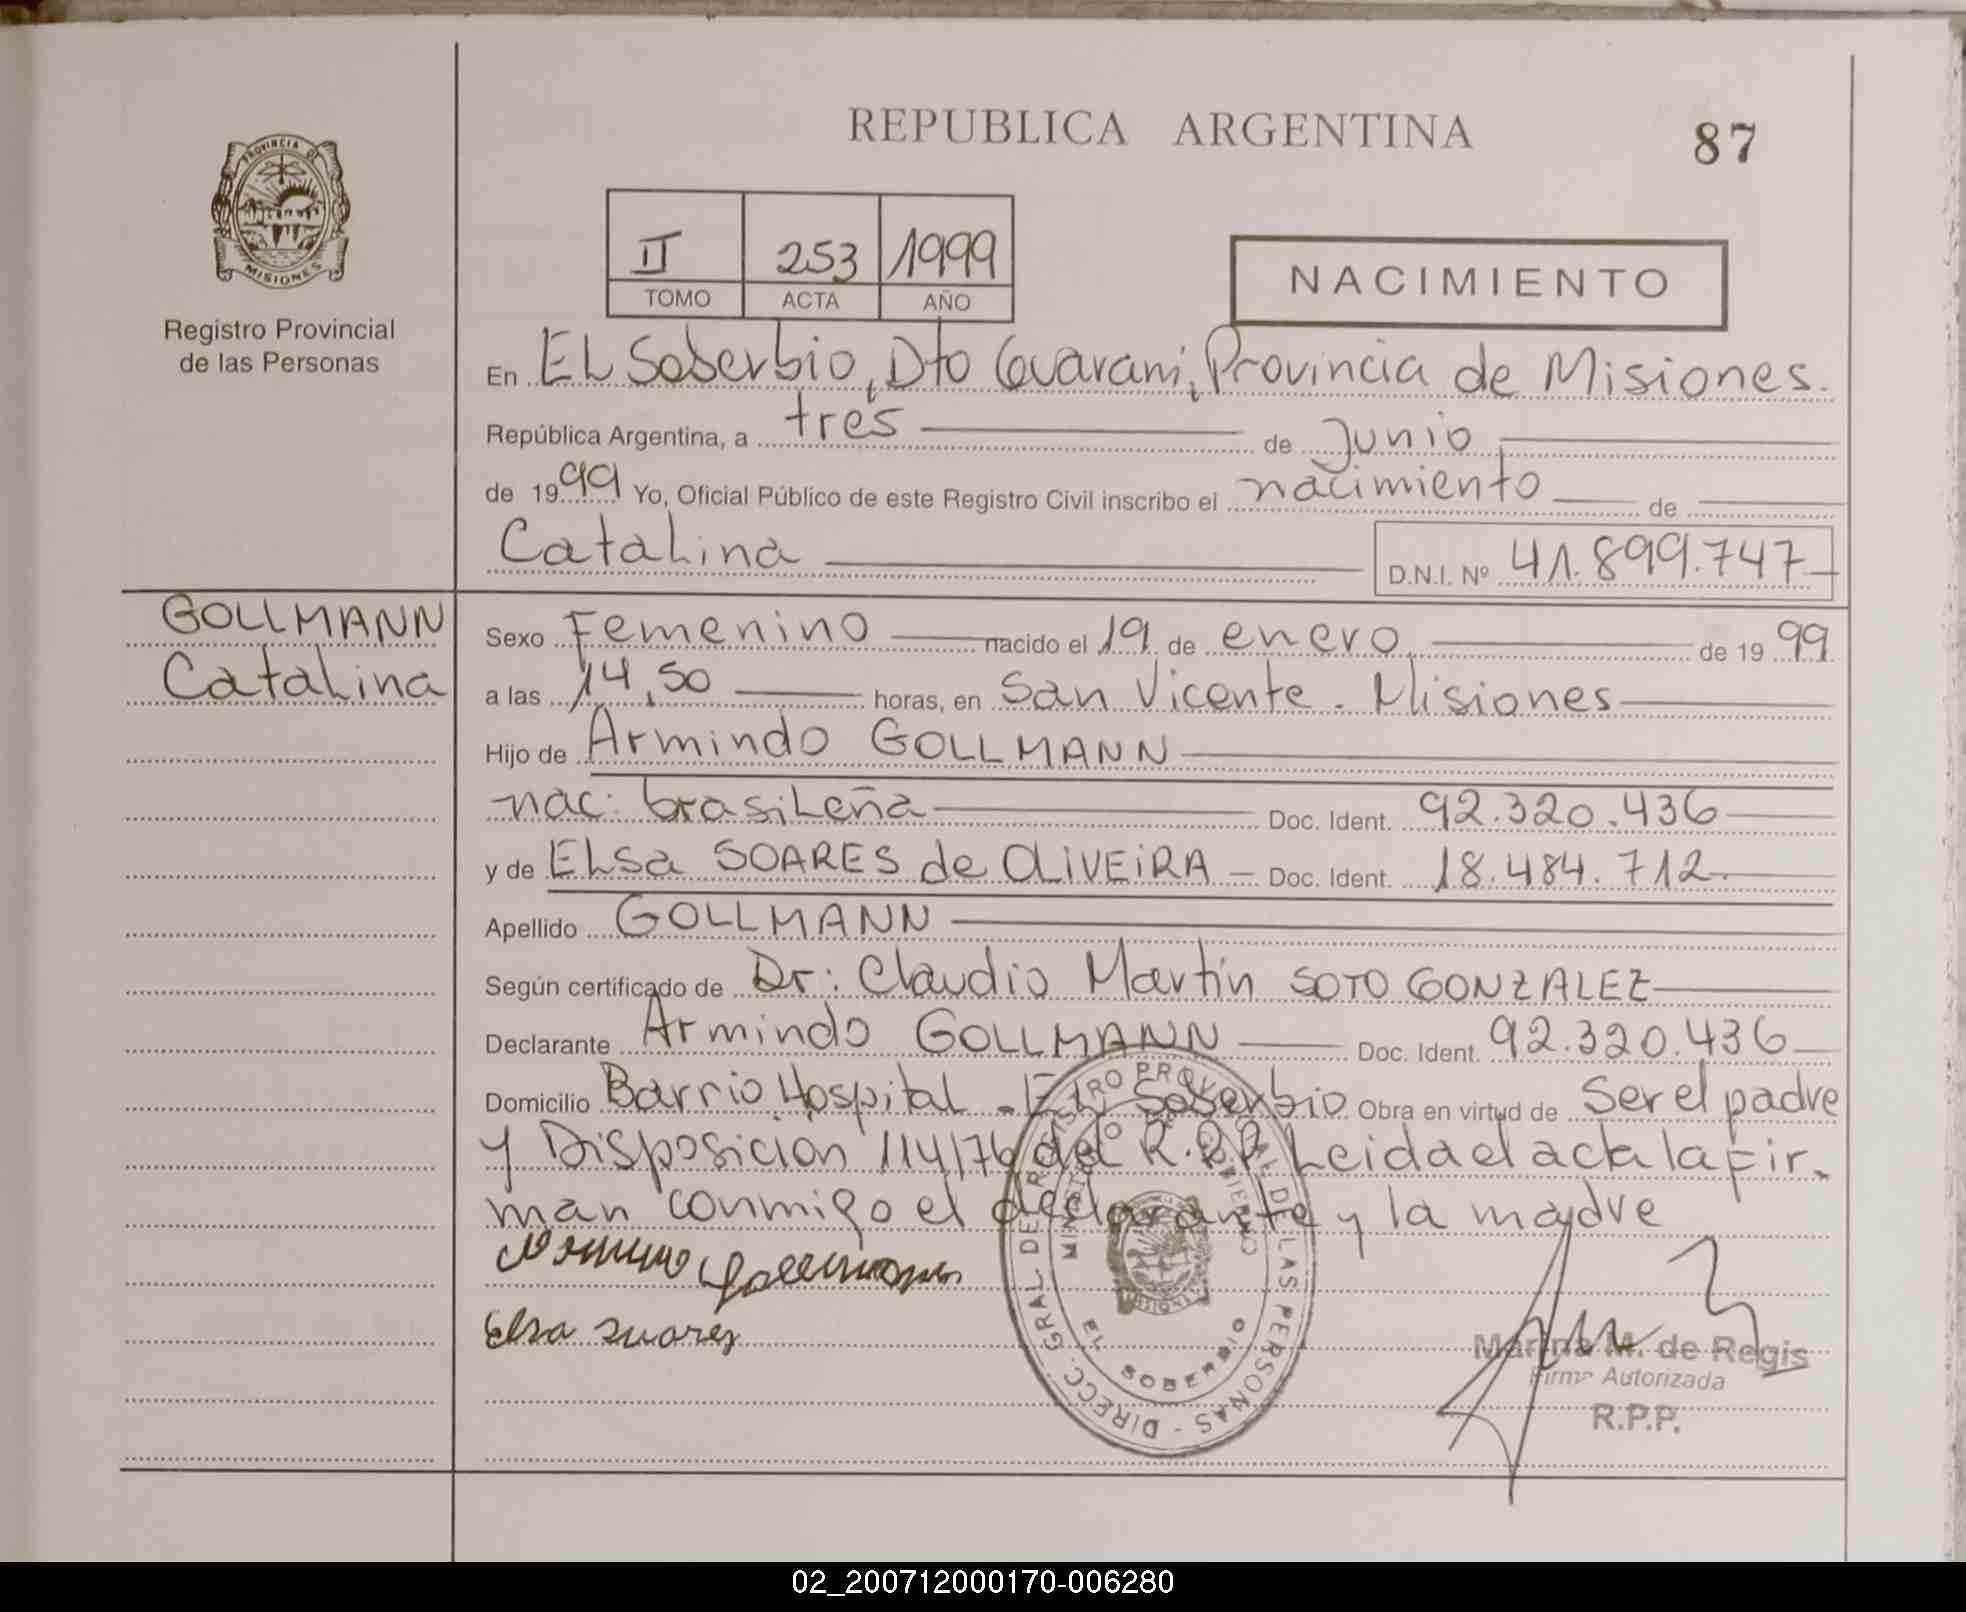 REPUBLICA ARGENTINA
87
PROVINCIA DE
MISIONES
Registro Provincial
de las Personas
II 253 1999
TOMO ACTA AÑO
NACIMIENTO
En EL Soberbio, Dto Guaraní, Provincia de Misiones.
República Argentina, a tres de Junio
de 1999 Yo, Oficial Público de este Registro Civil inscribo el nacimiento de
Catalina D.N.I. Nº 41.899.747
GOLLMANN
Catalina
Sexo Femenino nacido el 19 de enero de 1999
a las 14,50 horas, en San Vicente - Misiones
Hijo de Armindo GOLLMANN
nac: brasileña Doc. Ident. 92.320.436
y de ELsa SOARES de OLiVEiRA Doc. Ident. 18.484.712
Apellido GOLLMANN
Según certificado de Dr: Claudio Martín SOTO GONZALEZ
Declarante Armindo GOLLMANN Doc. Ident. 92.320.436
Domicilio Barrio Hospital - EL Soberbio Obra en virtud de Ser el padre
y Disposición 114/76 del R.P.P. Leida el acta la fir-
man conmigo el declarante y la madre
Elsa suarez
DIRECC. GRAL. DE REGISTRO PROVINCIAL DE LAS PERSONAS
MINISTERIO DE GOBIERNO
MISIONES
EL SOBERBIO
Marina M. de Regis
Firma Autorizada
R.P.P.
02_200712000170-006280